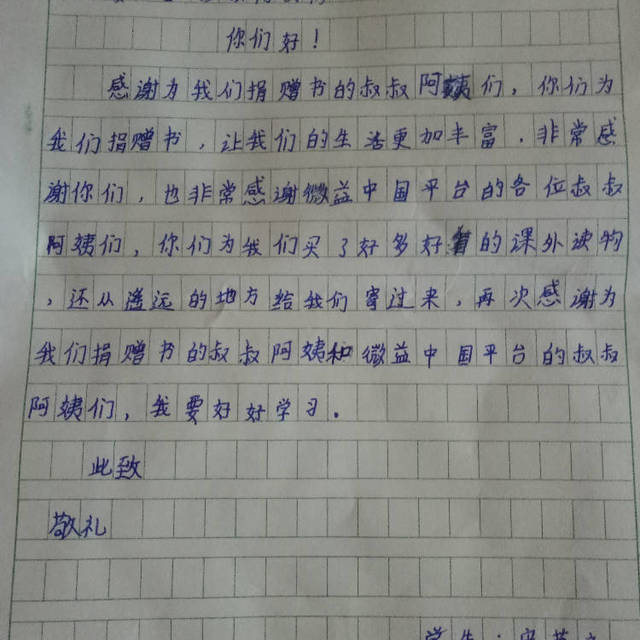 你们好！
感谢为我们捐赠书的叔叔阿姨们，你们为
我们捐赠书，让我们的生活更加丰富．非常感
谢你们，也非常感谢微益中国平台的各位叔叔
阿姨们，你们为我们买了好多好看的课外读物
，还从遥远的地方给我们寄过来，再次感谢为
我们捐赠书的叔叔阿姨和微益中国平台的叔叔
阿姨们，我要好好学习。
此致
敬礼
学生：